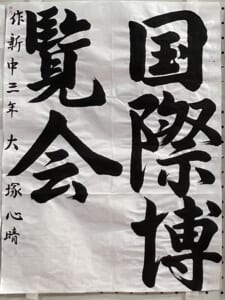 国際博
覧会
作新中三年 大塚心晴